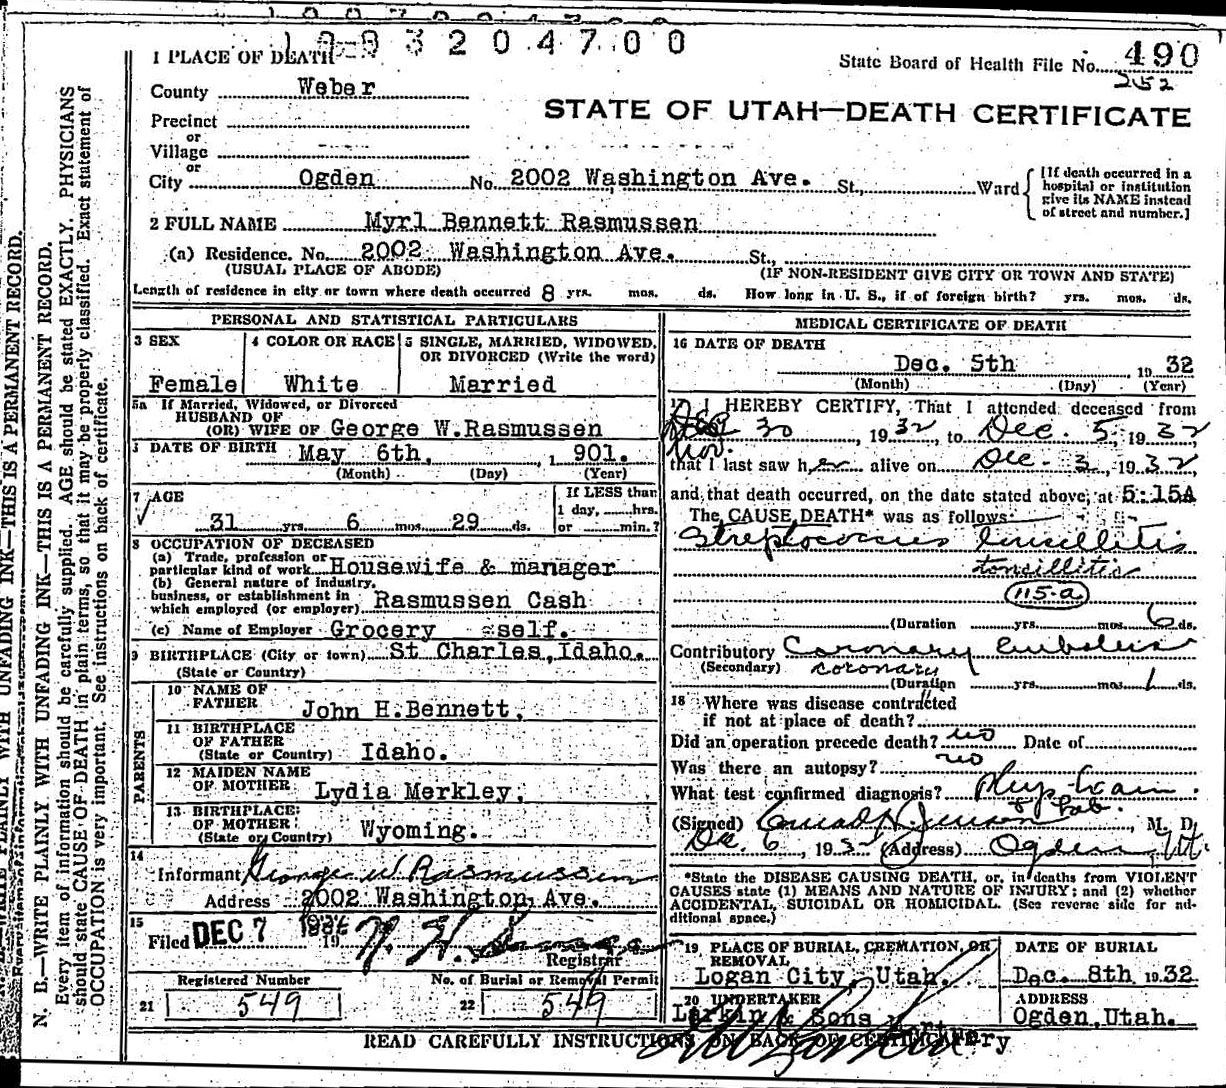 1003204700
1 PLACE OF DEATH
State Board of Health File No. 490
252
County Weber
STATE OF UTAH—DEATH CERTIFICATE
Precinct
or
Village
or
City Ogden No. 2002 Washington Ave. St., Ward
[If death occurred in a hospital or institution give its NAME instead of street and number.]
2 FULL NAME Myrl Bennett Rasmussen
(a) Residence. No. 2002 Washington Ave. St.,
(USUAL PLACE OF ABODE) (IF NON-RESIDENT GIVE CITY OR TOWN AND STATE)
Length of residence in city or town where death occurred 8 yrs. mos. ds. How long in U. S., if of foreign birth? yrs. mos. ds.
PERSONAL AND STATISTICAL PARTICULARS
3 SEX
Female
4 COLOR OR RACE
White
5 SINGLE, MARRIED, WIDOWED,
OR DIVORCED (Write the word)
Married
5a If Married, Widowed, or Divorced
HUSBAND OF
(OR) WIFE OF George W.Rasmussen
DATE OF BIRTH May 6th, 1901.
(Month) (Day) (Year)
7 AGE
31 yrs. 6 mos. 29 ds.
If LESS than
1 day, hrs.
or min.?
8 OCCUPATION OF DECEASED
(a) Trade, profession or
particular kind of work Housewife & manager
(b) General nature of industry,
business, or establishment in
which employed (or employer) Rasmussen Cash
(c) Name of Employer Grocery self.
9 BIRTHPLACE (City or town) St Charles,Idaho.
(State or Country)
PARENTS
10 NAME OF
FATHER John H.Bennett,
11 BIRTHPLACE
OF FATHER
(State or Country) Idaho.
12 MAIDEN NAME
OF MOTHER Lydia Merkley,
13 BIRTHPLACE
OF MOTHER
(State or Country) Wyoming.
14
Informant George W Rasmussen
Address 2002 Washington Ave.
15
Filed DEC 7 19
Registrar
Registered Number
21 549
No. of Burial or Removal Permit
22 549
MEDICAL CERTIFICATE OF DEATH
16 DATE OF DEATH
Dec. 5th 1932
(Month) (Day) (Year)
17 I HEREBY CERTIFY, That I attended deceased from
Nov. 30, 1932 to Dec. 5, 1932
that I last saw her alive on Dec. 3, 1932
and that death occurred, on the date stated above, at 5:15A
The CAUSE DEATH* was as follows:
Streptococcus tonsillitis
tonsillitis
115-a
(Duration yrs. mos. 6 ds.
Contributory Coronary embolus
(Secondary) coronary
(Duration yrs. mos. 1 ds.
18 Where was disease contracted
if not at place of death?
Did an operation precede death? no Date of
Was there an autopsy? no
What test confirmed diagnosis? Phys. Exam.
& Lab.
(Signed) Conrad H. Jenson, M. D.
Dec. 6, 1932 (Address) Ogden, Ut.
*State the DISEASE CAUSING DEATH, or, in deaths from VIOLENT
CAUSES state (1) MEANS AND NATURE OF INJURY; and (2) whether
ACCIDENTAL, SUICIDAL OR HOMICIDAL. (See reverse side for additional space.)
19 PLACE OF BURIAL, CREMATION, OR
REMOVAL
Logan City, Utah.
DATE OF BURIAL
Dec. 8th 1932
20 UNDERTAKER
Larkin & Sons Mortuary
ADDRESS
Ogden,Utah.
READ CAREFULLY INSTRUCTIONS ON BACK OF CERTIFICATE
N. B.—WRITE PLAINLY WITH UNFADING INK—THIS IS A PERMANENT RECORD.
Every item of information should be carefully supplied. AGE should be stated EXACTLY. PHYSICIANS
should state CAUSE OF DEATH in plain terms, so that it may be properly classified. Exact statement of
OCCUPATION is very important. See instructions on back of certificate.